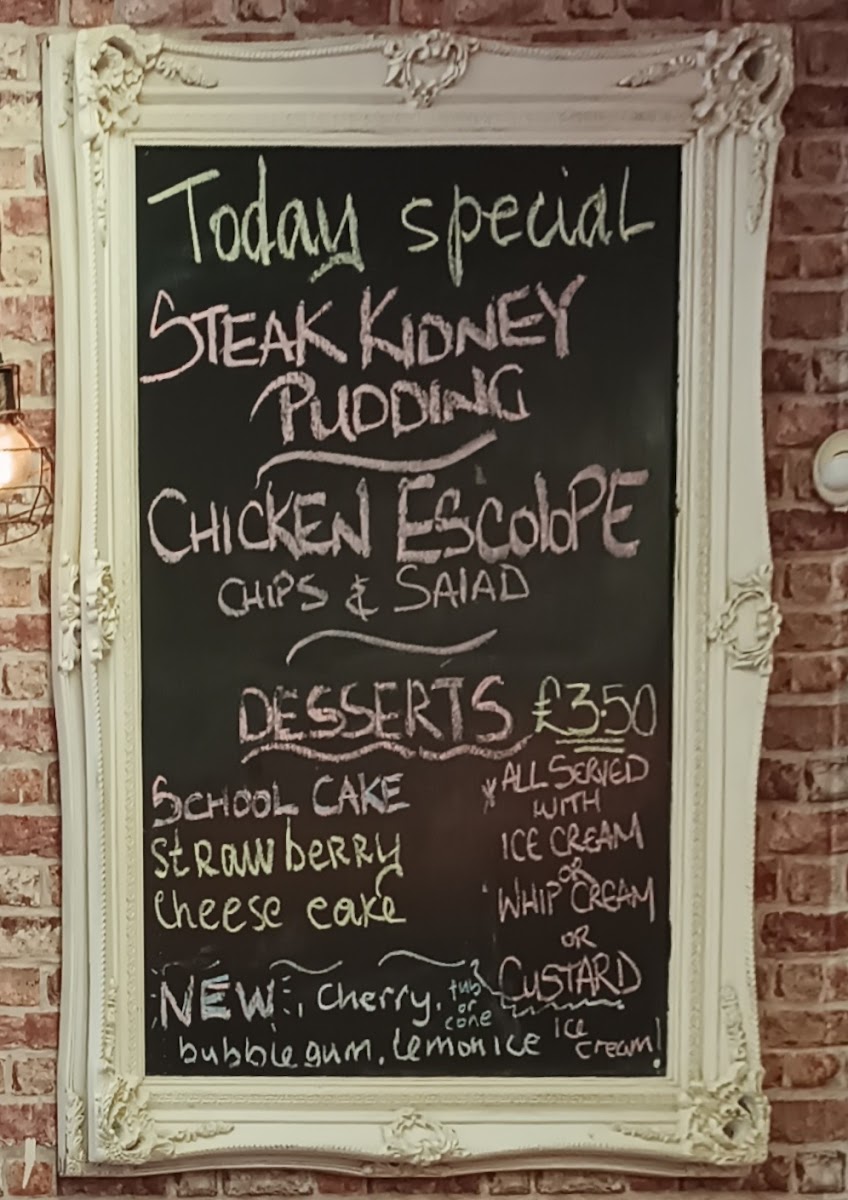 Today special
STEAK KIDNEY
PUDDING
CHICKEN ESCOlOPE
CHIPS & SAlAD
DESSERTS £3.50
SCHOOL CAKE
strawberry
cheese cake
*ALL SERVED
WITH
ICE CREAM
OR
WHIP CREAM
OR
CUSTARD
NEW, Cherry, tub
or
cone
bubble gum, lemonice ice
cream!